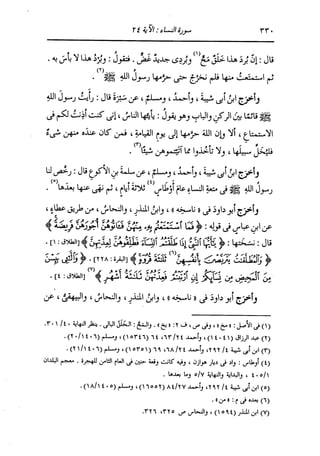 ٣٣٠ سورة النساء : الآية ٢٤
قال : إن بُرد هذا خَلَقٌ مَحٌّ(١) وبُردى جديدٌ غضٌّ . فتقولُ : وبُردُ هذا لا بأسَ به .
ثم استمتعتُ منها فلم نخرُج حتى حرّمها رسولُ الله ﷺ(٢) .
وأخرج ابنُ أبى شيبةَ ، وأحمدُ ، ومسلمٌ ، عن سَبْرةَ قال : رأيتُ رسولَ اللهِ
ﷺ قائمًا بينَ الركنِ والبابِ وهو يقولُ : يأيُّها الناسُ ، إنى كنتُ أذِنتُ لكم فى
الاستمتاعِ ، ألا وإن اللهَ حرّمها إلى يومِ القيامةِ ، فمن كان عندَه منهن شىءٌ
فليُخَلِّ سبيلَها ، ولا تأخذوا مما آتيتموهن شيئًا(٣) .
وأخرج ابنُ أبى شيبةَ ، وأحمدُ ، ومسلمٌ ، عن سلمةَ بنِ الأكوعِ قال : رخّص لنا
رسولُ اللهِ ﷺ فى متعةِ النساءِ عامَ أوطاسٍ(٤) ثلاثةَ أيامٍ ، ثم نهى عنها بعدَها(٥) .
وأخرج أبو داودَ فى « ناسخِه » ، وابنُ المنذرِ ، والنحاسُ ، من طريقِ عطاءٍ ،
عن ابنِ عباسٍ فى قولِه : ﴿ فَمَا اسْتَمْتَعْتُم بِهِ مِنْهُنَّ فَآتُوهُنَّ أُجُورَهُنَّ فَرِيضَةً ﴾
قال : نسَختها : ﴿ يَا أَيُّهَا النَّبِيُّ إِذَا طَلَّقْتُمُ النِّسَاءَ فَطَلِّقُوهُنَّ لِعِدَّتِهِنَّ ﴾ [ الطلاق : ١ ] .
﴿ وَالْمُطَلَّقَاتُ يَتَرَبَّصْنَ بِأَنفُسِهِنَّ(٦) ثَلَاثَةَ قُرُوءٍ ﴾ [ البقرة : ٢٢٨ ] . ﴿ وَاللَّائِي يَئِسْنَ
مِنَ الْمَحِيضِ مِن نِّسَائِكُمْ إِنِ ارْتَبْتُمْ فَعِدَّتُهُنَّ ثَلَاثَةُ أَشْهُرٍ ﴾(٧) [ الطلاق : ٤ ] .
وأخرج أبو داودَ فى « ناسخِه » ، وابنُ المنذرِ ، والنحاسُ ، والبيهقىُّ ، عن
(١) فى الأصل : « مح » ، وفى ص ، ف ٢ : « يح » . والمح : الخَلَق البالى . ينظر النهاية ٤/ ٣٠١.
(٢) عبد الرزاق (١٤٠٤١) ، وأحمد ٢٤/ ٦٣، ٦٤ (١٥٣٤٦) ، ومسلم (١٤٠٦/ ٢٠) .
(٣) ابن أبى شيبة ٤/ ٢٩٢، وأحمد ٢٤/ ٦٨، ٦٩ (١٥٣٥١) ، ومسلم (١٤٠٦/ ٢١) .
(٤) أوطاس : واد فى ديار هوازن ، وفيه كانت وقعة حنين فى العام الثامن للهجرة . معجم البلدان
١/ ٤٠٥، والبداية والنهاية ٧/ ٥ وما بعدها .
(٥) ابن أبى شيبة ٤/ ٢٩٢، وأحمد ٢٧/ ٨٤ (١٦٥٥٢) ، ومسلم (١٤٠٥/ ١٨) .
(٦) بعده فى م : « من » .
(٧) ابن المنذر (١٥٩٤) ، والنحاس ص ٣٢٥، ٣٢٦.